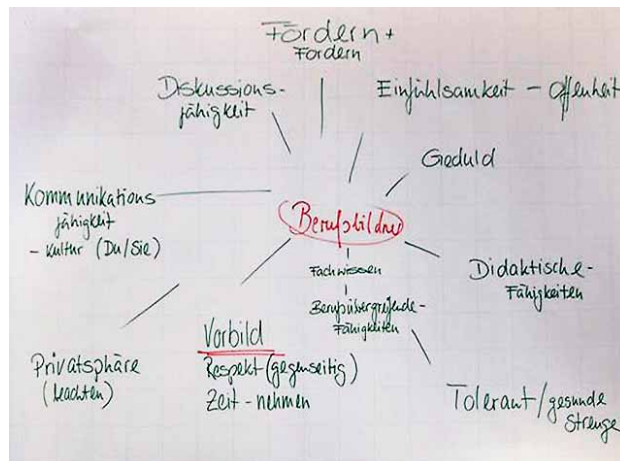 Fördern +
Fordern
Diskussions-
fähigkeit
Einfühlsamkeit - Offenheit
Geduld
Kommunikations
fähigkeit
- Kultur (Du/Sie)
Berufsbildner
Fachwissen
Berufsübergreifende-
Fähigkeiten
Didaktische-
Fähigkeiten
Vorbild
Respekt (gegenseitig)
Zeit - nehmen
Privatsphäre
(beachten)
Tolerant / gesunde
Strenge